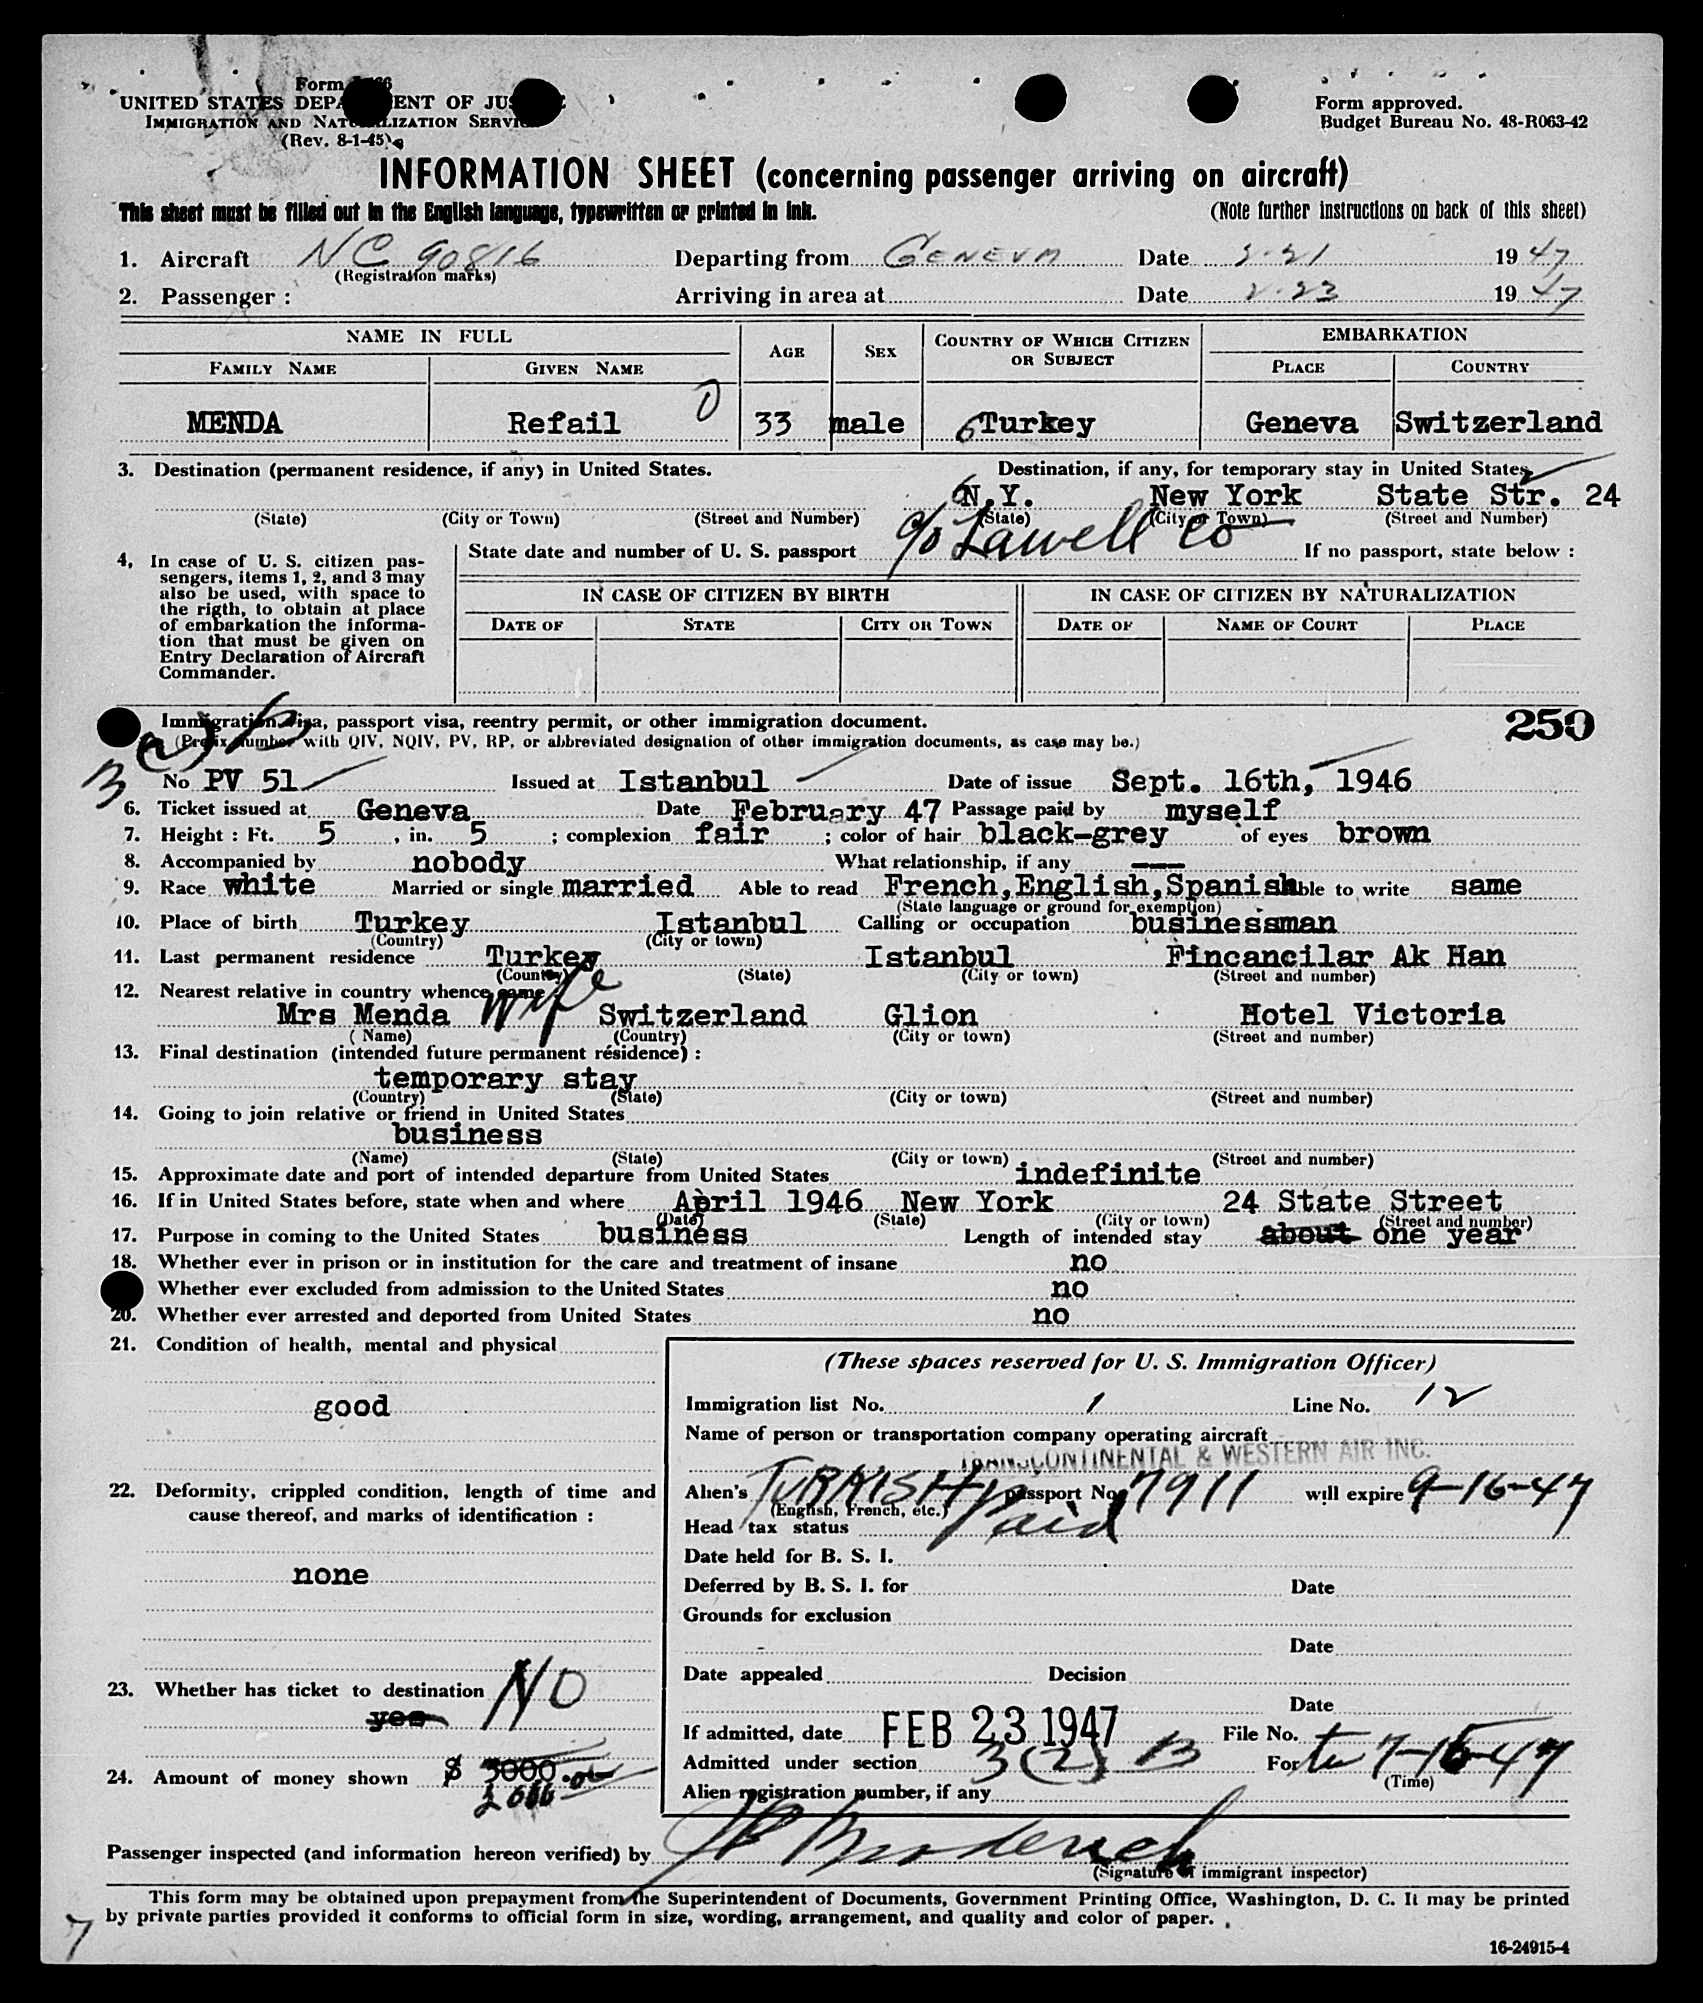 Form
UNITED STATES DEPARTMENT OF JUSTICE
IMMIGRATION AND NATURALIZATION SERVICE
(Rev. 8-1-45)
Form approved.
Budget Bureau No. 43-R063-42
INFORMATION SHEET (concerning passenger arriving on aircraft)
This sheet must be filled out in the English language, typewritten or printed in ink. (Note further instructions on back of this sheet)
1. Aircraft NC 90816 Departing from GENEVA Date 2-21 1947
(Registration marks)
2. Passenger : Arriving in area at Date 2-23 1947
NAME IN FULL AGE SEX COUNTRY OF WHICH CITIZEN OR SUBJECT EMBARKATION
FAMILY NAME GIVEN NAME PLACE COUNTRY
MENDA Refail 33 male Turkey Geneva Switzerland
3. Destination (permanent residence, if any) in United States. Destination, if any, for temporary stay in United States.
N.Y. New York State Str. 24
(State) (City or Town) (Street and Number) (State) (City or Town) (Street and Number)
c/o Lawell Co
4, In case of U. S. citizen pas-
sengers, items 1, 2, and 3 may
also be used, with space to
the rigth, to obtain at place
of embarkation the informa-
tion that must be given on
Entry Declaration of Aircraft
Commander.
State date and number of U. S. passport If no passport, state below :
IN CASE OF CITIZEN BY BIRTH IN CASE OF CITIZEN BY NATURALIZATION
DATE OF STATE CITY OR TOWN DATE OF NAME OF COURT PLACE
Immigration visa, passport visa, reentry permit, or other immigration document. 250
(Prefix number with QIV, NQIV, PV, RP, or abbreviated designation of other immigration documents, as case may be.)
3 (2) b
No PV 51 Issued at Istanbul Date of issue Sept. 16th, 1946
6. Ticket issued at Geneva Date February 47 Passage paid by myself
7. Height : Ft. 5 , in. 5 ; complexion fair ; color of hair black-grey of eyes brown
8. Accompanied by nobody What relationship, if any ---
9. Race white Married or single married Able to read French,English,Spanish Able to write same
(State language or ground for exemption)
10. Place of birth Turkey Istanbul Calling or occupation businessman
(Country) (City or town)
11. Last permanent residence Turkey Istanbul Fincancilar Ak Han
(Country) (State) (City or town) (Street and number)
12. Nearest relative in country whence came
Mrs Menda wife Switzerland Glion Hotel Victoria
( Name) (Country) (City or town) (Street and number)
13. Final destination (intended future permanent résidence) :
temporary stay
(Country) (State) (City or town) (Street and number)
14. Going to join relative or friend in United States
business
(Name) (State) (City or town) (Street and number)
15. Approximate date and port of intended departure from United States indefinite
16. If in United States before, state when and where April 1946 New York 24 State Street
(Date) (State) (City or town) (Street and number)
17. Purpose in coming to the United States business Length of intended stay about one year
18. Whether ever in prison or in institution for the care and treatment of insane no
Whether ever excluded from admission to the United States no
20. Whether ever arrested and deported from United States no
21. Condition of health, mental and physical
good
22. Deformity, crippled condition, length of time and
cause thereof, and marks of identification :
none
23. Whether has ticket to destination NO
yes
24. Amount of money shown $ 3000.00
2000
(These spaces reserved for U. S. Immigration Officer)
Immigration list No. 1 Line No. 12
Name of person or transportation company operating aircraft
TRANSCONTINENTAL & WESTERN AIR INC.
Alien's TURKISH passport No. 7911 will expire 9-16-47
(English, French, etc.)
Head tax status Paid
Date held for B. S. I.
Deferred by B. S. I. for Date
Grounds for exclusion
Date
Date appealed Decision
Date
If admitted, date FEB 23 1947 File No.
Admitted under section 3 (2) B For to 7-15-47
(Time)
Alien registration number, if any
Passenger inspected (and information hereon verified) by
(Signature of immigrant inspector)
This form may be obtained upon prepayment from the Superintendent of Documents, Government Printing Office, Washington, D. C. It may be printed
by private parties provided it conforms to official form in size, wording, arrangement, and quality and color of paper.
7
16-24915-4